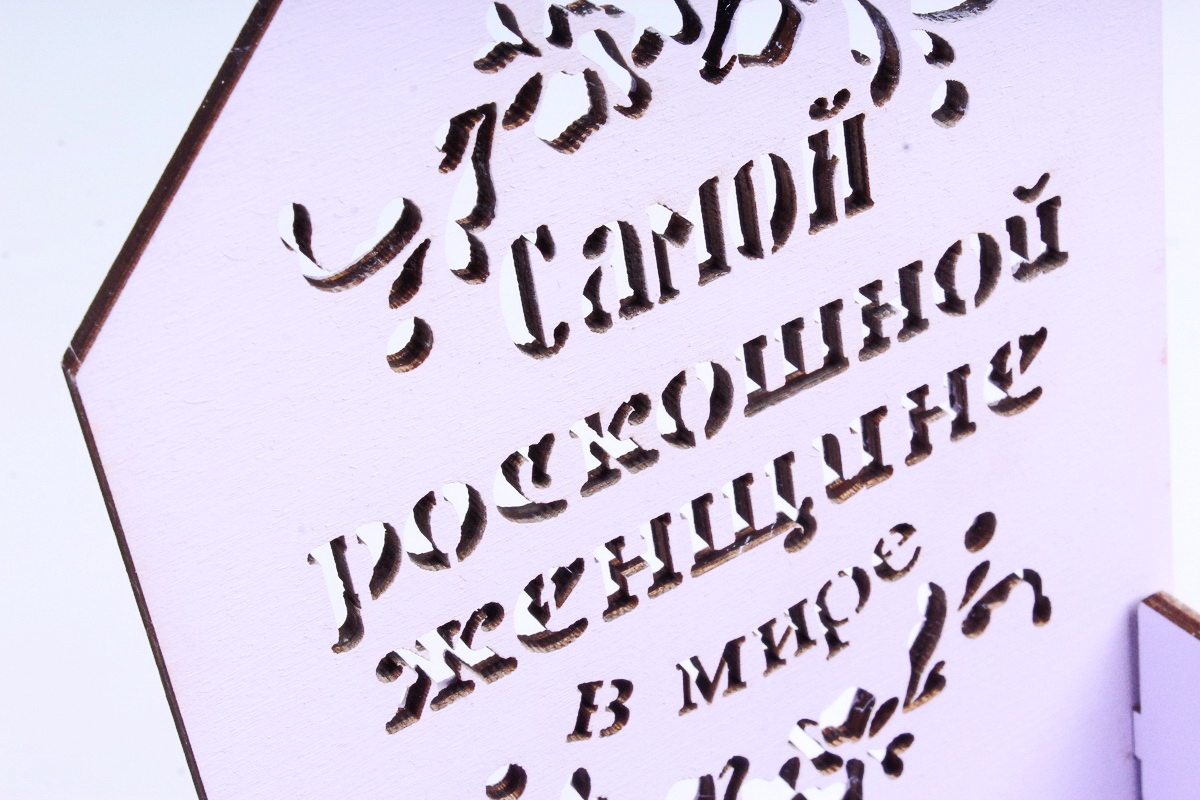 Самой
роскошной
женщине
в мире